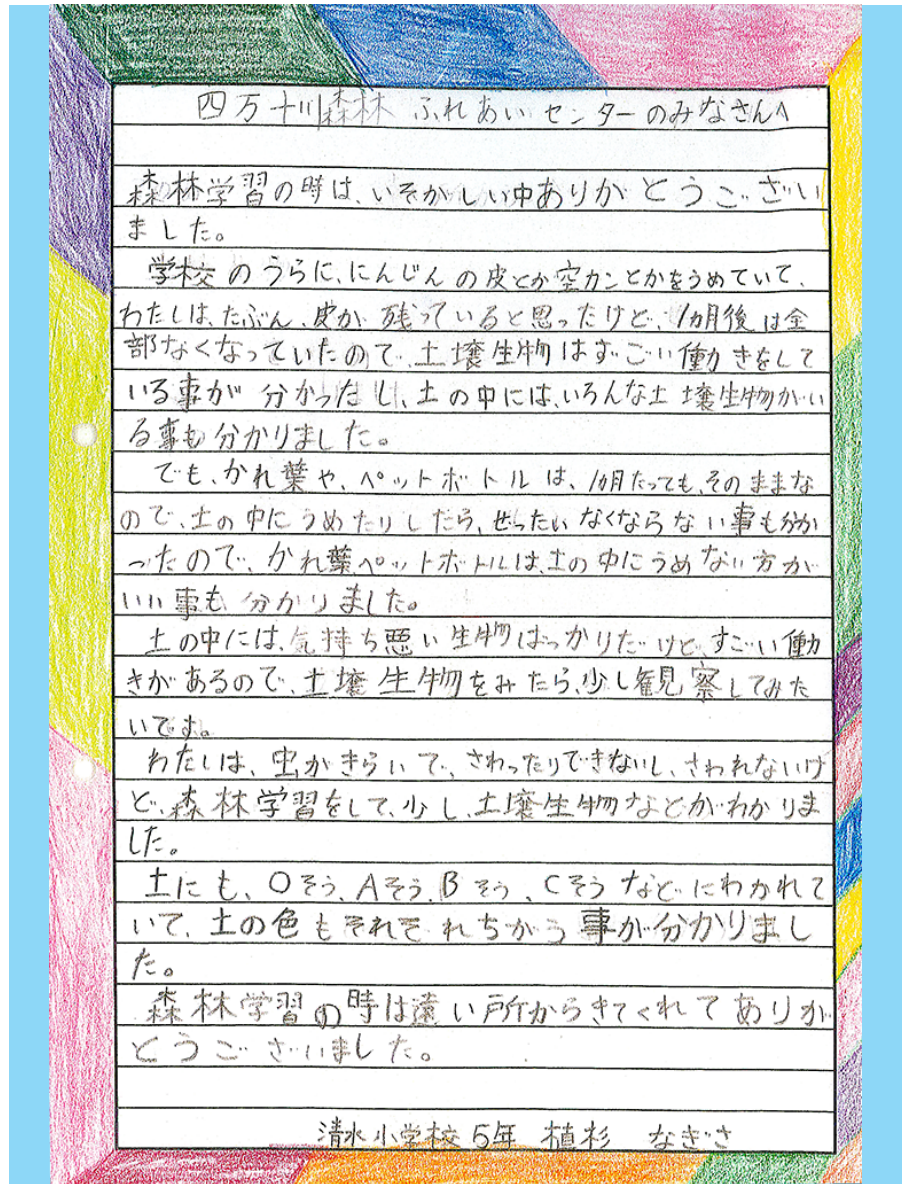 四万十川森林ふれあいセンターのみなさんへ
森林学習の時は、いそがしい中ありがとうござい
ました。
学校のうらに、にんじんの皮とか空カンとかをうめていて、
わたしは、たぶん、皮が残っていると思ったけど、1カ月後は全
部なくなっていたので、土壌生物はすごい働きをして
いる事が分かったし、土の中には、いろんな土壌生物がい
る事も分かりました。
でも、かれ葉や、ペットボトルは、1カ月たっても、そのままな
ので、土の中にうめたりしたら、ぜったいなくならない事も分か
ったので、かれ葉、ペットボトルは、土の中にうめない方が
いい事も分かりました。
土の中には、気持ち悪い生物ばっかりだけど、すごい働
きがあるので、土壌生物をみたら、少し観察してみた
いです。
わたしは、虫がきらいで、さわったりできないし、さわれないけ
ど、森林学習をして、少し、土壌生物などがわかりま
した。
土にも、Oそう、Aそう、Bそう、Cそうなどにわかれて
いて、土の色もそれぞれちがう事が分かりまし
た。
森林学習の時は遠い所からきてくれてありが
とうございました。
清水小学校5年 植杉 なぎさ